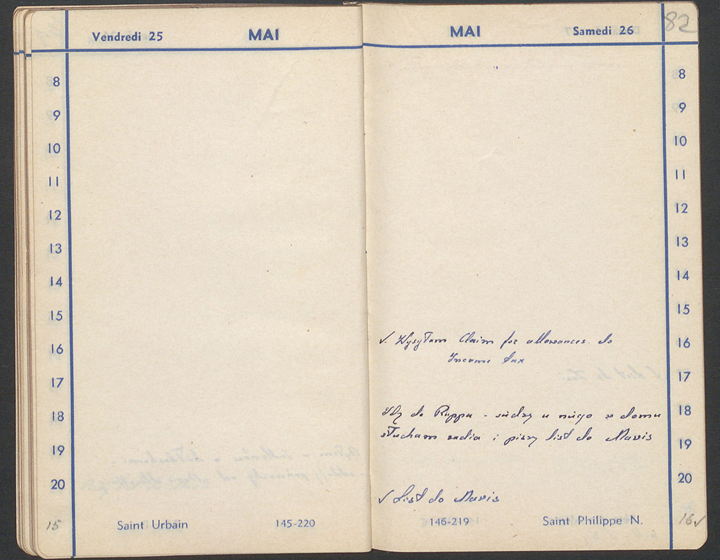 Vendredi 25 MAI
8
9
10
11
12
13
14
15
16
17
18
19
20
15 Saint Urbain 145-220
82
MAI Samedi 26
8
9
10
11
12
13
14
15
✓ Wysyłam Claim for allowances do
16
Income tax
17
Idę do Ruppa - siedzę u niego w domu
18
słucham radia i piszę list do Mavis
19
20
✓ List do Mavis
146-219 Saint Philippe N. 16✓